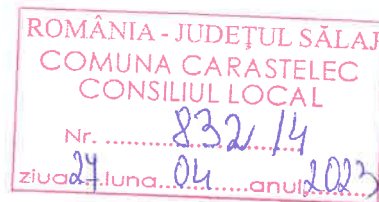 ROMÂNIA - JUDEŢUL SĂLAJ
COMUNA CARASTELEC
CONSILIUL LOCAL
Nr. ........832/4........
ziua 27.luna....04......anul 2023